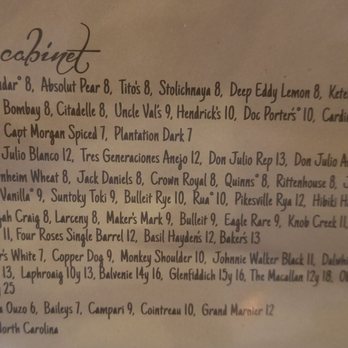 cabinet
dar° 8, Absolut Pear 8, Tito's 8, Stolichnaya 8, Deep Eddy Lemon 8, Kete
Bombay 8, Citadelle 8, Uncle Val's 9, Hendrick's 10, Doc Porter's° 10, Cardi
Capt Morgan Spiced 7, Plantation Dark 7
Julio Blanco 12, Tres Generaciones Anejo 12, Don Julio Rep 13, Don Julio A
nheim Wheat 8, Jack Daniels 8, Crown Royal 8, Quinns° 8, Rittenhouse 8, J
Vanilla° 9, Suntoky Toki 9, Bulleit Rye 10, Rua° 10, Pikesville Rya 12, Hibiki H
ah Craig 8, Larceny 8, Maker's Mark 9, Bulleit 9, Eagle Rare 9, Knob Creek 11,
11, Four Roses Single Barrel 12, Basil Hayden's 12, Baker's 13
r's White 7, Copper Dog 9, Monkey Shoulder 10, Johnnie Walker Black 11, Dalwh
13, Laphroaig 10y 13, Balvenie 14y 16, Glenfiddich 15y 16, The Macallan 12y 18, O
25
Ouzo 6, Baileys 7, Campari 9, Cointreau 10, Grand Marnier 12
North Carolina